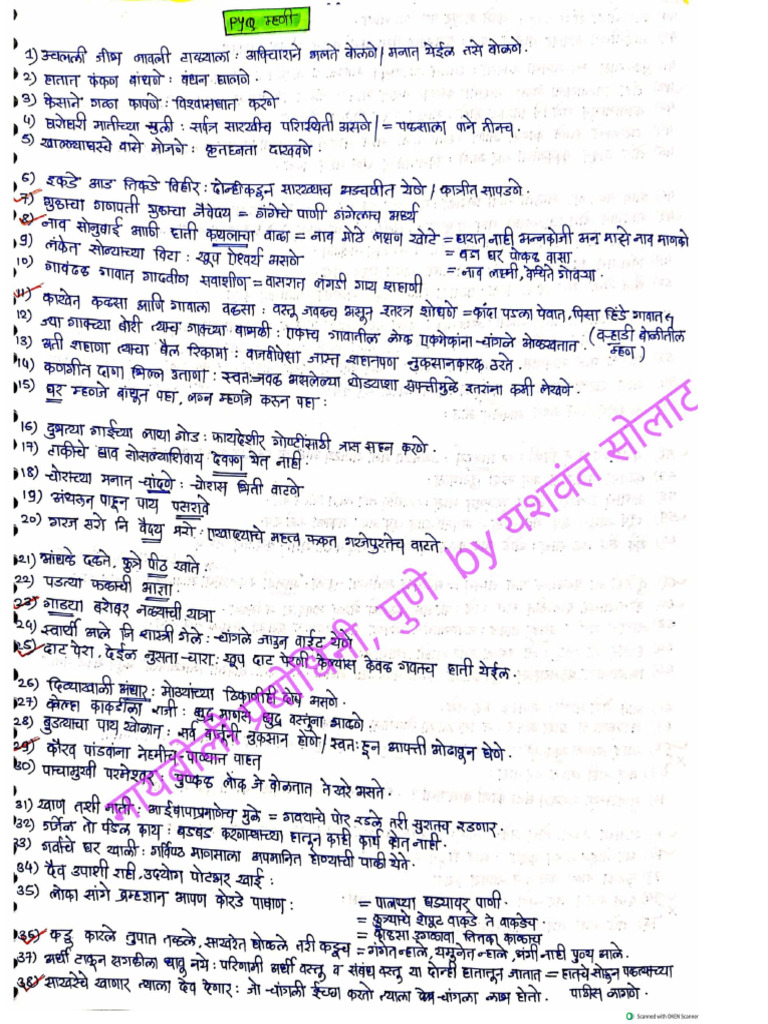 PYQ म्हणी
1) उचलली जीभ लावली टाळ्याला : अविचाराने भलते बोलणे / मनात येईल तसे बोलणे.
2) हातात कंकण बांधणे : बंधन घालणे
3) केसाने गळा कापणे : विश्वासघात करणे
4) घरोघरी मातीच्या चुली : सर्वत्र सारखीच परिस्थिती असणे / = पळसाला पाने तीनच.
5) खाल्ल्याघरचे वासे मोजणे : कृतघ्नता दाखवणे.
6) इकडे आड तिकडे विहीर : दोन्हीकडून सारख्याच अडचणीत येणे / कात्रीत सापडणे.
7) गुळाचा गणपती गुळाचा नैवेद्य = गंगेचे पाणी गंगेलाच अर्घ्य
8) नाव सोनुबाई आणि हाती कथलाचा वाळा = नाव मोठे लक्षण खोटे = घरात नाही अन्नकोंडी अन् माझे नाव माणकोंडी
9) लंकेत सोन्याच्या विटा : खूप ऐश्वर्य असणे = बडा घर पोकळ वासा
10) गावंढळ गावात गाढवीण सवाशीण = वासरात लंगडी गाय शहाणी = नाव लक्ष्मी, वेचिते गोवऱ्या.
11) काखेत कळसा आणि गावाला वळसा : वस्तू जवळच असून इतरत्र शोधणे = कांदा पडला पेवात, पिसा हिंडे गावात
12) ज्या गावच्या बोरी त्याच गावच्या बाभळी : एकाच गावातील लोक एकमेकांना चांगले ओळखतात. (वऱ्हाडी बोलीतील म्हण)
13) अती शहाणा त्याचा बैल रिकामा : वाजवीपेक्षा जास्त शहाणपणा नुकसानकारक ठरते.
14) कणगीत दाणा भिल्ल उताणा : स्वतःजवळ असलेल्या थोड्याशा संपत्तीमुळे इतरांना कमी लेखणे.
15) घर म्हणजे बांधून पहा, लग्न म्हणजे करून पहा :
16) दुभत्या गाईच्या लाथा गोड : फायदेशीर गोष्टींसाठी त्रास सहन करणे.
17) टाकीचे घाव सोसल्याशिवाय देवपण येत नाही.
18) चोराच्या मनात चांदणे : चोरास भिती वाटणे
19) अंथरूण पाहून पाय पसरावे
20) गरज सरो नि वैद्य मरो : एखाद्याचे महत्व फक्त गरजेपुरतेच वाटते.
21) आंधळे दळते, कुत्रे पीठ खाते :
22) पडत्या फळाची आज्ञा
23) गाड्या बरोबर नळ्याची यात्रा
24) स्वार्थी आले नि शास्त्री गेले : चांगले जाऊन वाईट येणे
25) दाट पेरा, देईल नुसता चारा : खूप दाट पेरणी केल्यास केवळ गवतच हाती येईल.
26) दिव्याखाली अंधार : मोठ्यांच्या ठिकाणीही दोष असणे.
27) कोल्हा काकडीला राजी : क्षुद्र माणसे क्षुद्र वस्तूंना आवडणे.
28) बुडत्याचा पाय खोलात : सर्व बाजूंनी नुकसान होणे / स्वतःहून आपत्ती ओढवून घेणे.
29) कौरव पांडवांना नेहमीच पाण्यात पाहत
30) पाचामुखी परमेश्वर : पुष्कळ लोक जे बोलतात ते खरे असते.
31) खाण तशी माती : आईबापाप्रमाणेच मुले = गवयाचे पोर रडले तरी सुरातच रडणार.
32) गर्जेल तो पडेल काय : बडबड करणाऱ्याच्या हातून काही कार्य होत नाही.
33) गर्वाचे घर खाली : गर्विष्ठ माणसाला अपमानित होण्याची पाळी येते.
34) दैव उपाशी राही, उदयोग पोटभर खाई :
35) लोका सांगे ब्रम्हज्ञान आपण कोरडे पाषाण : = पालथ्या घड्यावर पाणी
= कुत्र्याचे शेपूट वाकडे ते वाकडेच
= कोळसा उगळावा तितका काळाच
36) कडू कारले तुपात तळले, साखरेत घोळले तरी कडूच = गंगेत न्हाले, यमुनेत न्हाले, भंगी नाही पुण्य आले.
37) अर्धी टाकून सगळीला धावू नये : परिणामी अर्धी वस्तू व संबंध वस्तू या दोन्ही हातातून जातात = हातचे सोडून पळत्याच्या पाठीस लागणे.
38) साखरेचे खाणार त्याला देव देणार : जो चांगली ईच्छा करतो त्याला देव चांगला लाभ होतो.
मायबोली प्रबोधिनी, पुणे by यशवंत सोलाट
Scanned with OKEN Scanner